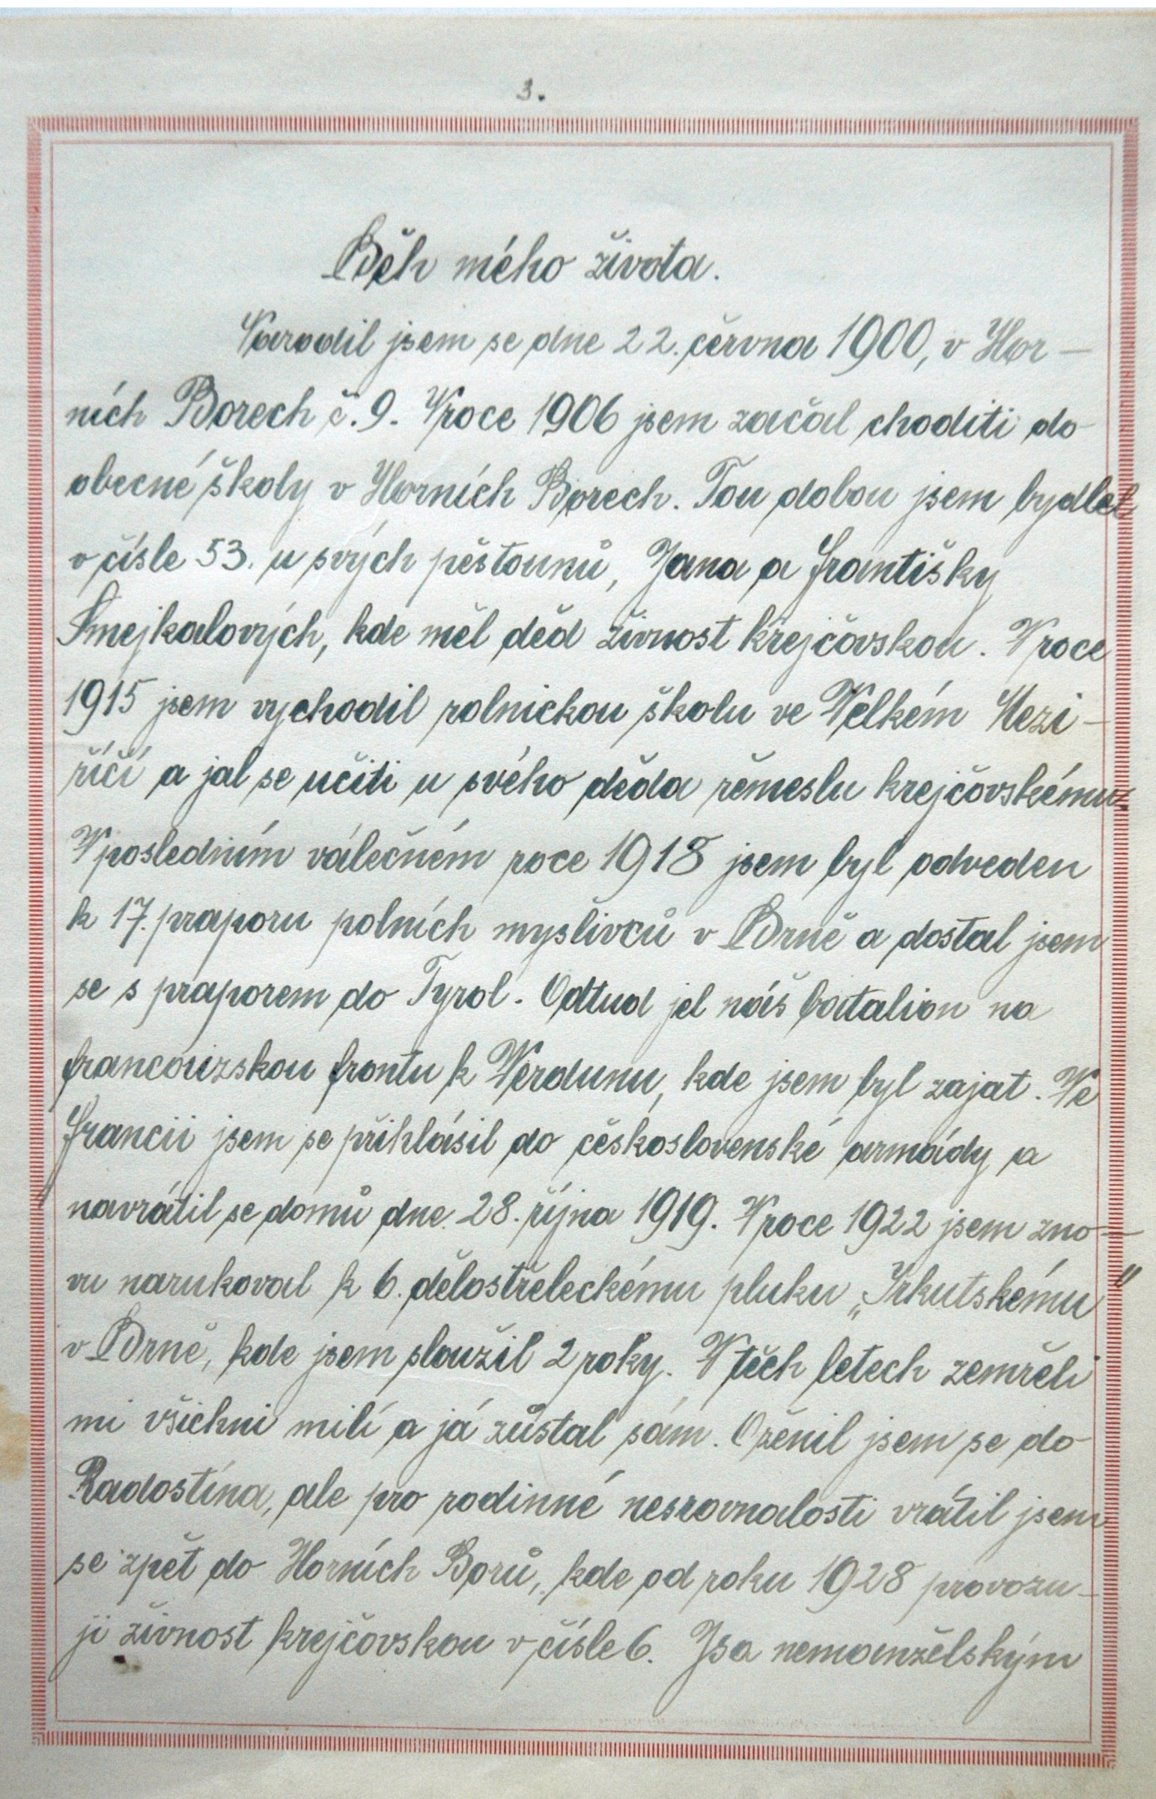 3.
Běh mého života.
Narodil jsem se dne 22. června 1900, v Hor-
ních Borech č. 9. V roce 1906 jsem začal choditi do
obecné školy v Horních Borech. Tou dobou jsem bydlel
v čísle 53. u svých pěstounů, Jana a Františky
Smejkalových, kde měl děd živnost krejčovskou. V roce
1915 jsem vychodil rolnickou školu ve Velkém Mezi-
říčí a jal se učiti u svého děda řemeslu krejčovskému.
V posledním válečném roce 1918 jsem byl odveden
k 17. praporu polních myslivců v Brně a dostal jsem
se s praporem do Tyrol. Odtud jel náš batalion na
francouzskou frontu k Verdunu, kde jsem byl zajat. Ve
Francii jsem se přihlásil do československé armády a
navrátil se domů dne 28. října 1919. V roce 1922 jsem zno-
vu narukoval k 6. dělostřeleckému pluku „Irkutskému"
v Brně, kde jsem sloužil 2 roky. V těch letech zemřeli
mi všichni milí a já zůstal sám. Oženil jsem se do
Radostína, ale pro rodinné nesrovnalosti vrátil jsem
se zpět do Horních Borů, kde od roku 1928 provozu-
ji živnost krejčovskou v čísle 6. Jsa nemanželským